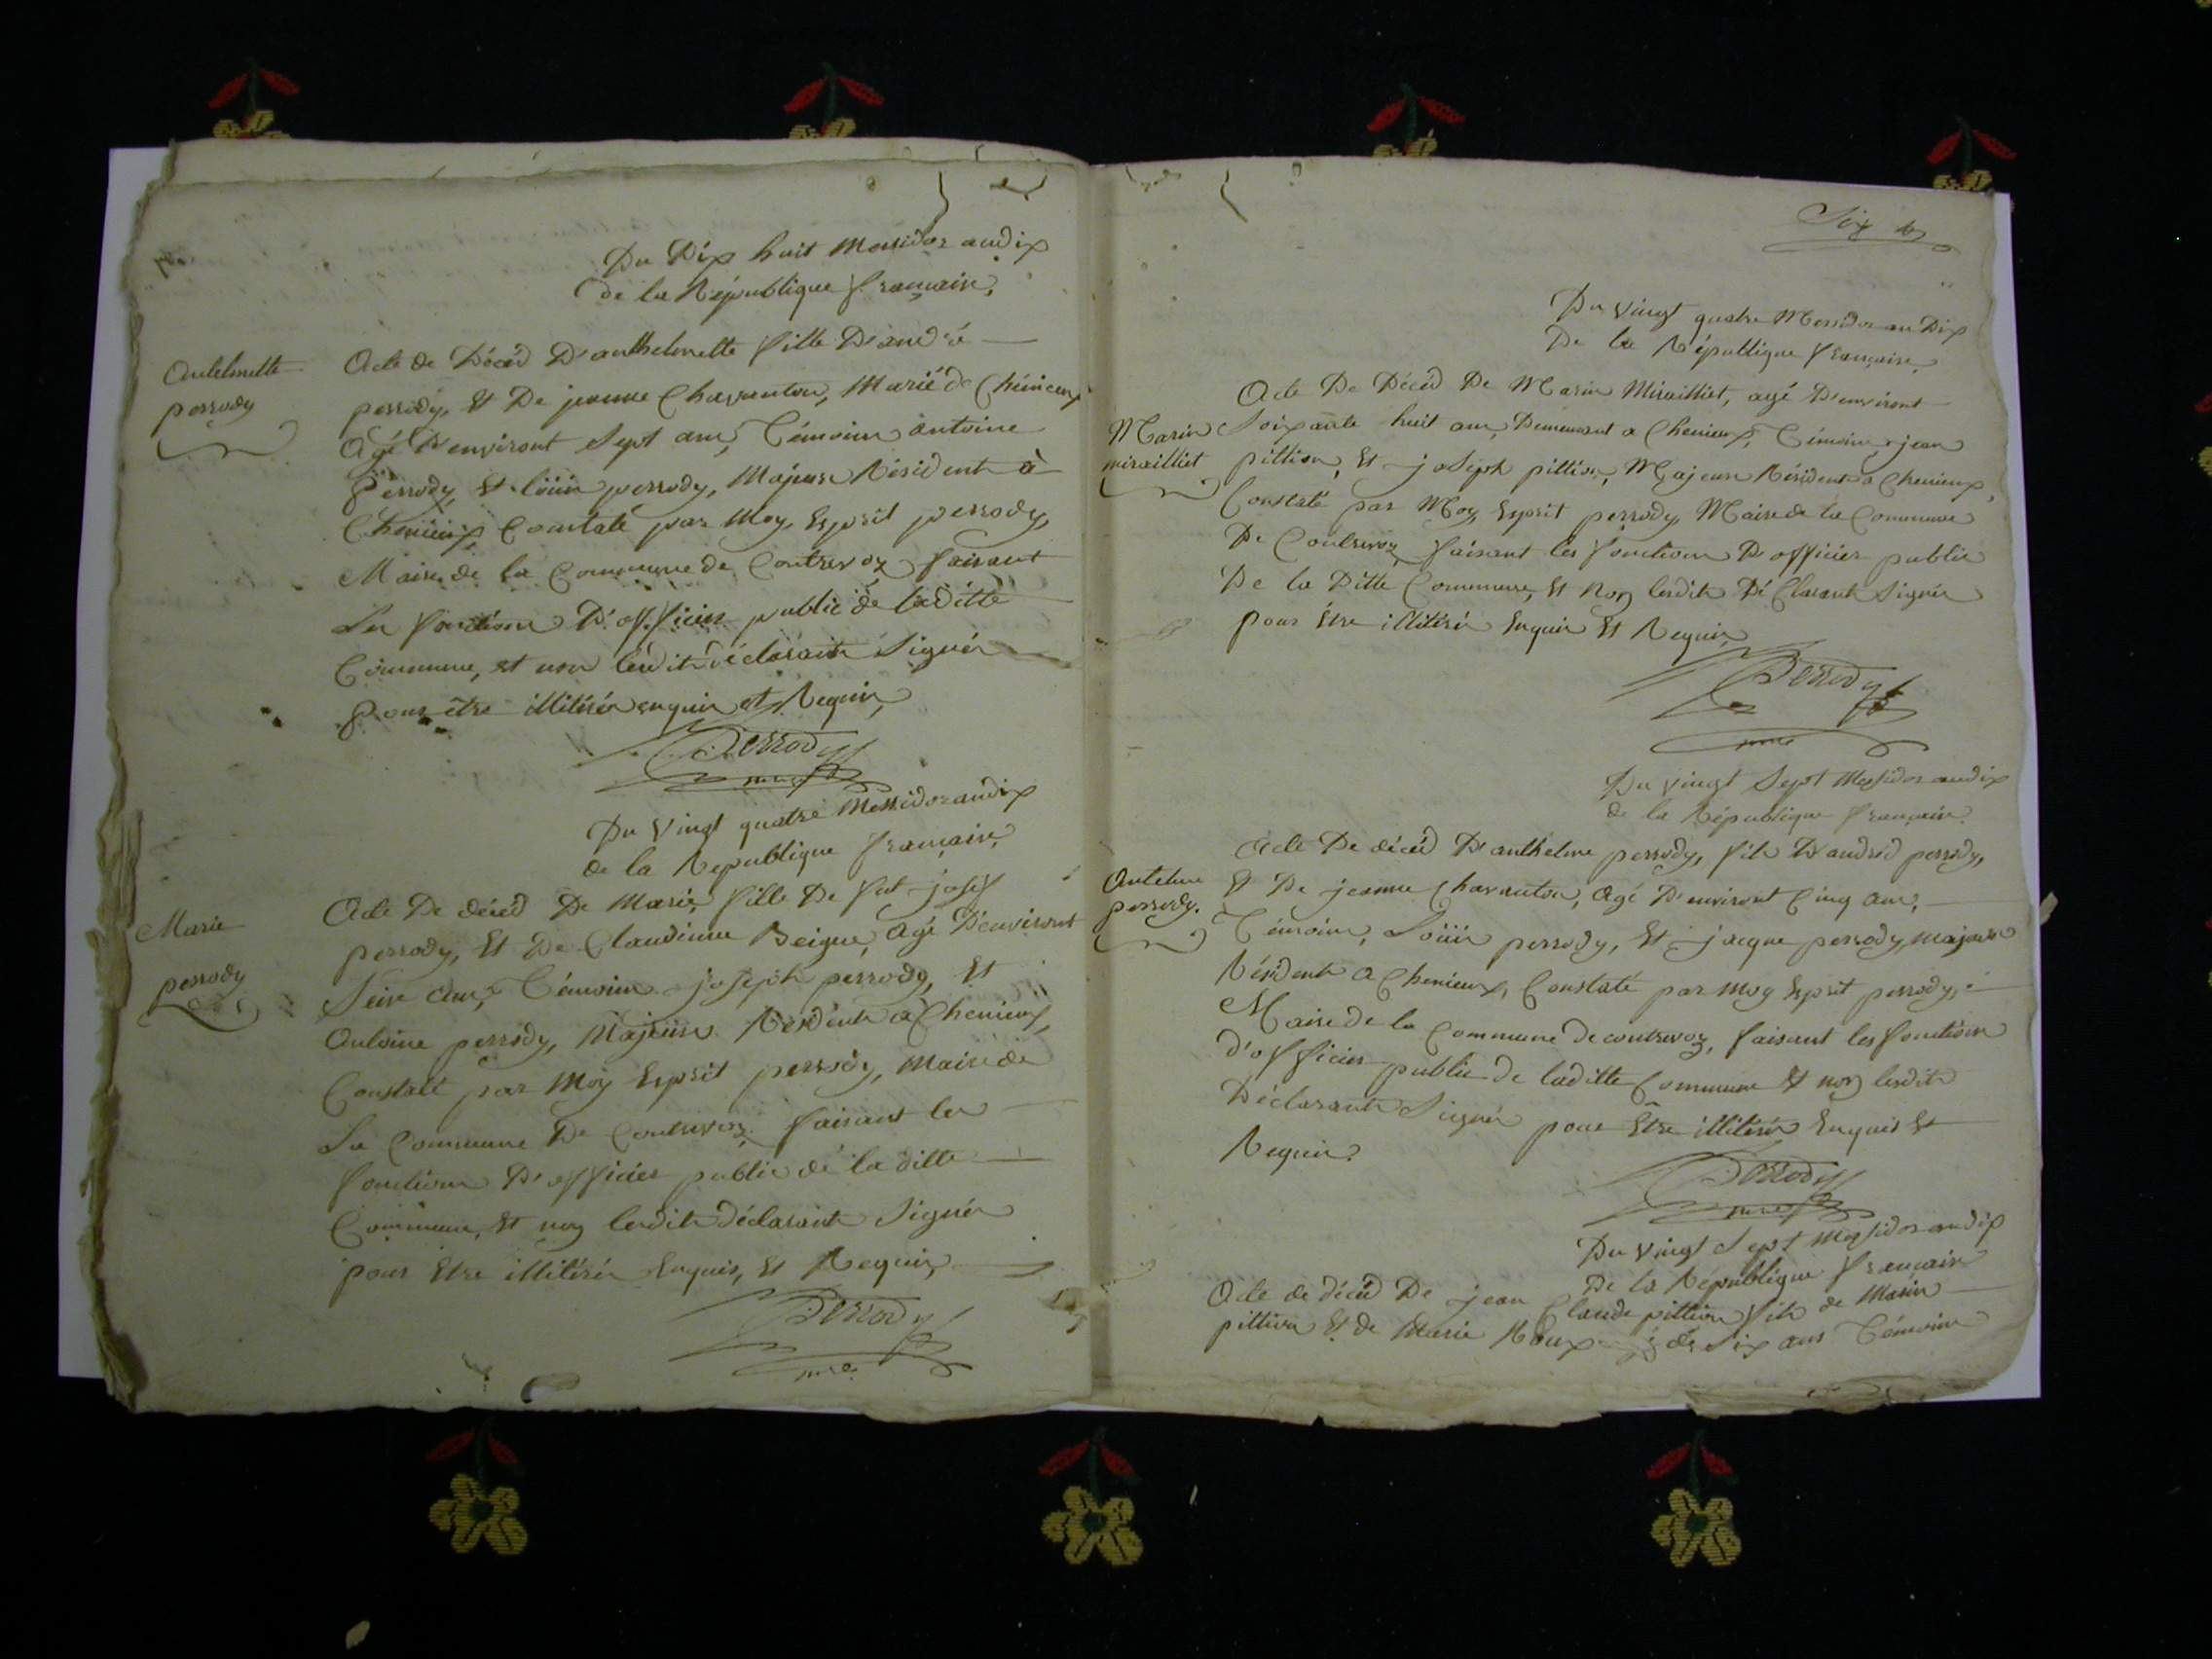 Du Dix huit Messidor an dix
de la République française,
Antelmette
perrody
Acte de Décéd D'anthelmette fille D'andré
perrody, Et De jeanne Chavanton, Marié de Chénieux
Agé D'environt Sept ans, Témoins antoine
Perrody, Et loüis perrody, Majeurs Résidents à
Chenieux, Constaté par Moy, Esprit perrody,
Maire de la Commune de Contrevoz faisant
Les fonctions D'officier public de laditte
Commune, et non lesdits déclarants Signés
pour être illitérés enquis et Requis,
Perrody
mre
Du Vingt quatre Messidor an dix
de la République française,
Marie
perrody
Acte De décéd De Marie, fille De fut josef
perrody, Et De Claudinne Beigue, Agé D'environt
Seise ans, Témoins joseph perrody, Et
Antoine perrody, Majeurs Résidents à Chenieux,
Constaté par Moy Esprit perrody, Maire de
La Commune De Contrevoz faisant les
fonctions D'officier public de la ditte
Commune, Et non lesdits déclarants Signés
pour Etre illitérés Enquis, Et Requis,
Perrody
mre
Six
Du vingt quatre Messidor an Dix
De la République française,
Marin
mirailliet
Acte De Décéd De Marin Mirailliet, agé D'environt
Soixante huit ans, Demeurant a Chenieux, Témoins jean
pittion, Et joseph pittion, Majeurs Résidents a Chenieux,
Constaté par Moy, Esprit perrody, Maire de la Commune
De Contrevoz, faisant les fonctions D'officier public
De la Ditte Commune, Et Non lesdits Déclarants Signés
pour Etre illitérés Enquis Et Requis,
Perrody
mre
Du vingt Sept Messidor an dix
de la République française.
Antelme
perrody.
Acte De décéd D'anthelme perrody, fils D'andréd perrody,
Et De jeanne Chavanton, Agé D'environt Cinq ans,
Témoins, Loüis perrody, Et jacque perrody, majeurs
Résidents a Chenieux, Constaté par Moy Esprit perrody,
Maire de la Commune de contrevoz, faisant les fonctions
d'officier public de laditte Commune Et non lesdits
Déclarants Signés pour Etre illitérés Enquis Et
Requis.
Perrody
mre
Du vingt Sept Messidor an dix
De la République française
Acte de décéd De jean Claude pittion fils de Marin
pittion Et de Marie Roux agé de Six ans Témoins